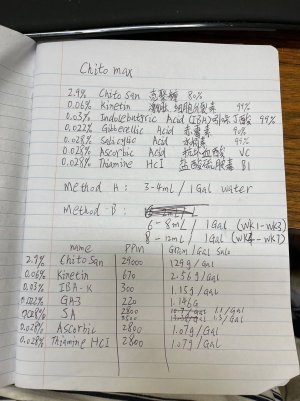 Chito max
2.9% Chito San 壳聚糖 80%
0.06% Kinetin 激动 细胞分裂素 99%
0.03% Indolebutyric Acid (IBA) 吲哚丁酸 99%
0.022% Gibberellic Acid 赤霉素 90%
0.028% Salicylic Acid 水杨酸 99%
0.028% Ascorbic Acid 抗坏血酸 VC
0.028% Thiamine HCl 盐酸硫胺素 B1
Method A: 3-4ml / 1 Gal water
Method B:
6-8ml / 1 Gal (WK1-WK3)
8-12ml / 1 Gal (WK4-WK7)
name PPM Gram / Gal Solo
2.9% Chito San 29000 129g/Gal
0.06% Kinetin 670 2.56g/Gal
0.03% IBA-K 300 1.15g/Gal
0.022% GA3 220 1.146G
0.028% SA 2800 1.1/Gal
1.5/Gal
0.028% Ascorbic 2800 1.07g/Gal
0.028% Thiamine HCl 2800 1.07g/Gal